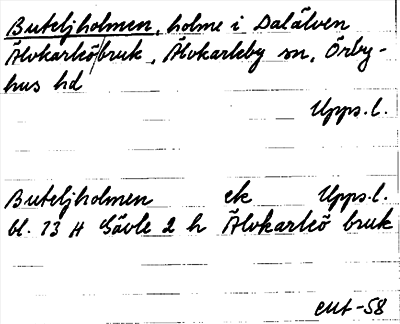 Buteljholmen, holme i Dalälven
Älvkarleö/bruk, Älvkarleby sn, Örby-
hus hd
Upps. l.
Buteljholmen ek Upps. l.
bl. 13 H Gävle 2 h Älvkarleö bruk
-58